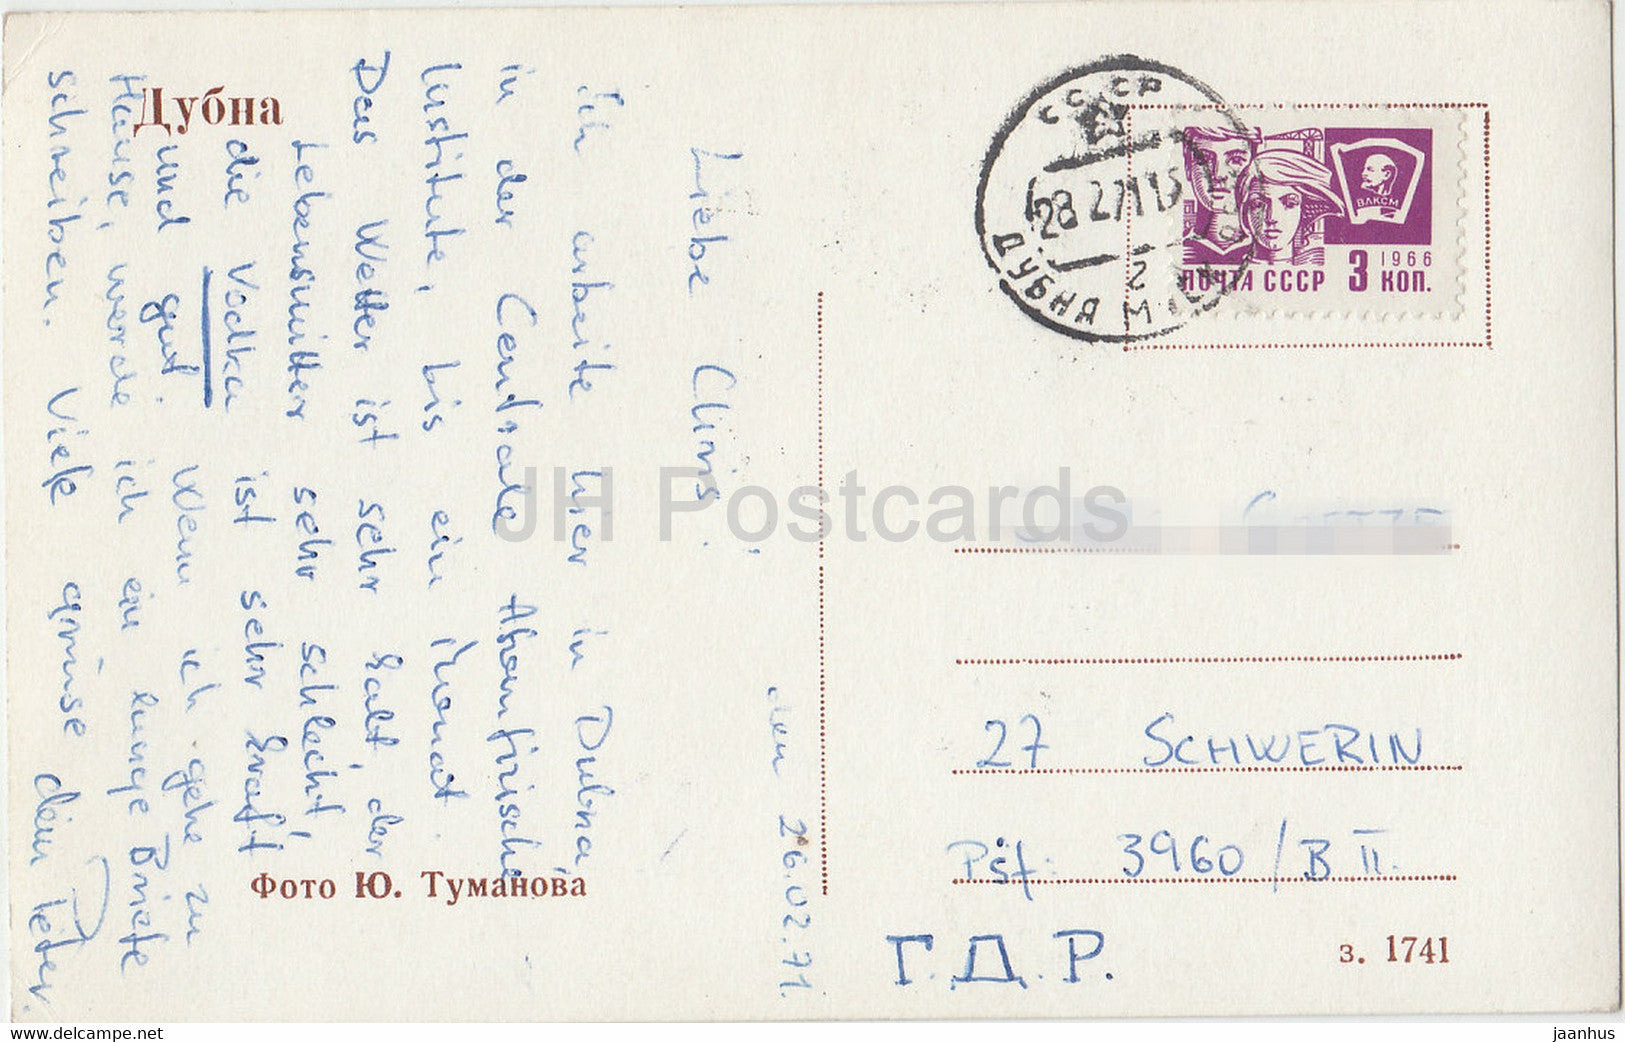 Дубна
den 26.02.71.
Liebe Chris!
Ich arbeite hier in Dubna,
in der Centrale Atomfizische
Institute, bis ein Monat.
Das Wetter ist sehr kalt, der
Lebensmitter sehr schlecht,
die Vodka ist sehr kraft
und gut. Wenn ich gehe zu
Hause, werde ich ein lange Briefe
schreiben. Viele grüsse dein Peter.
Фото Ю. Туманова
СССР
28 2 71 13
2
ДУБНА МОСК
ВЛКСМ
1966
ПОЧТА СССР 3 КОП.
27 SCHWERIN
Psf: 3960 / B II.
Г.Д.Р.
з. 1741
JH Postcards
delcampe.net
jaanhus